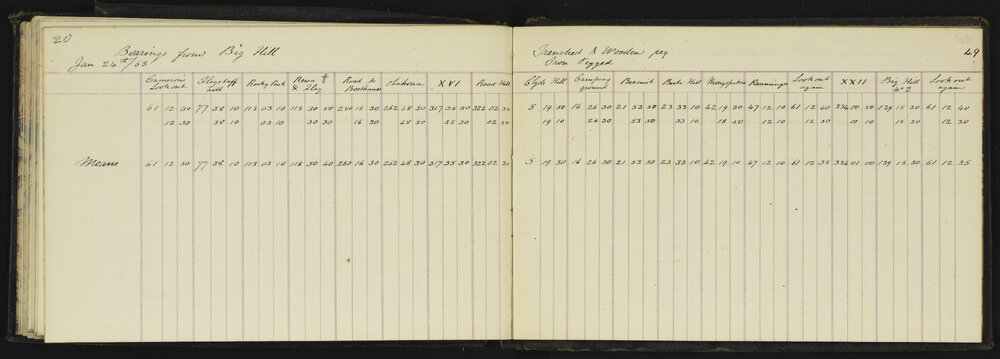 20
Bearings from Big Hill
Jan 24th/65
Trenched & Wooden peg
Iron Pegged
49
Cameron's Look out Flagstaff Hill Rocky Peak & Flag Road to XVI Road Hill Clyde Hill Camping ground Biscuit Bush Hill Kanninga Look out again XXII Big Hill No 2 Look out again
61 12 30 77 38 10 113 03 10 118 30 50 250 16 30 262 48 30 317 35 30 322 02 30 5 19 30 16 26 30 21 53 50 23 33 10 42 19 30 47 12 10 61 12 40 334 00 50 139 15 30 61 12 40
12 30 38 10 03 10 30 30 16 30 48 30 35 30 02 30 19 10 26 30 53 50 33 10 18 50 12 10 12 30 01 10 15 30 12 30
Means 61 12 30 77 38 10 113 03 10 118 30 40 250 16 30 262 48 30 317 35 30 322 02 30 5 19 30 16 26 30 21 53 50 23 33 10 42 19 10 47 12 10 61 12 35 334 01 00 139 15 30 61 12 35